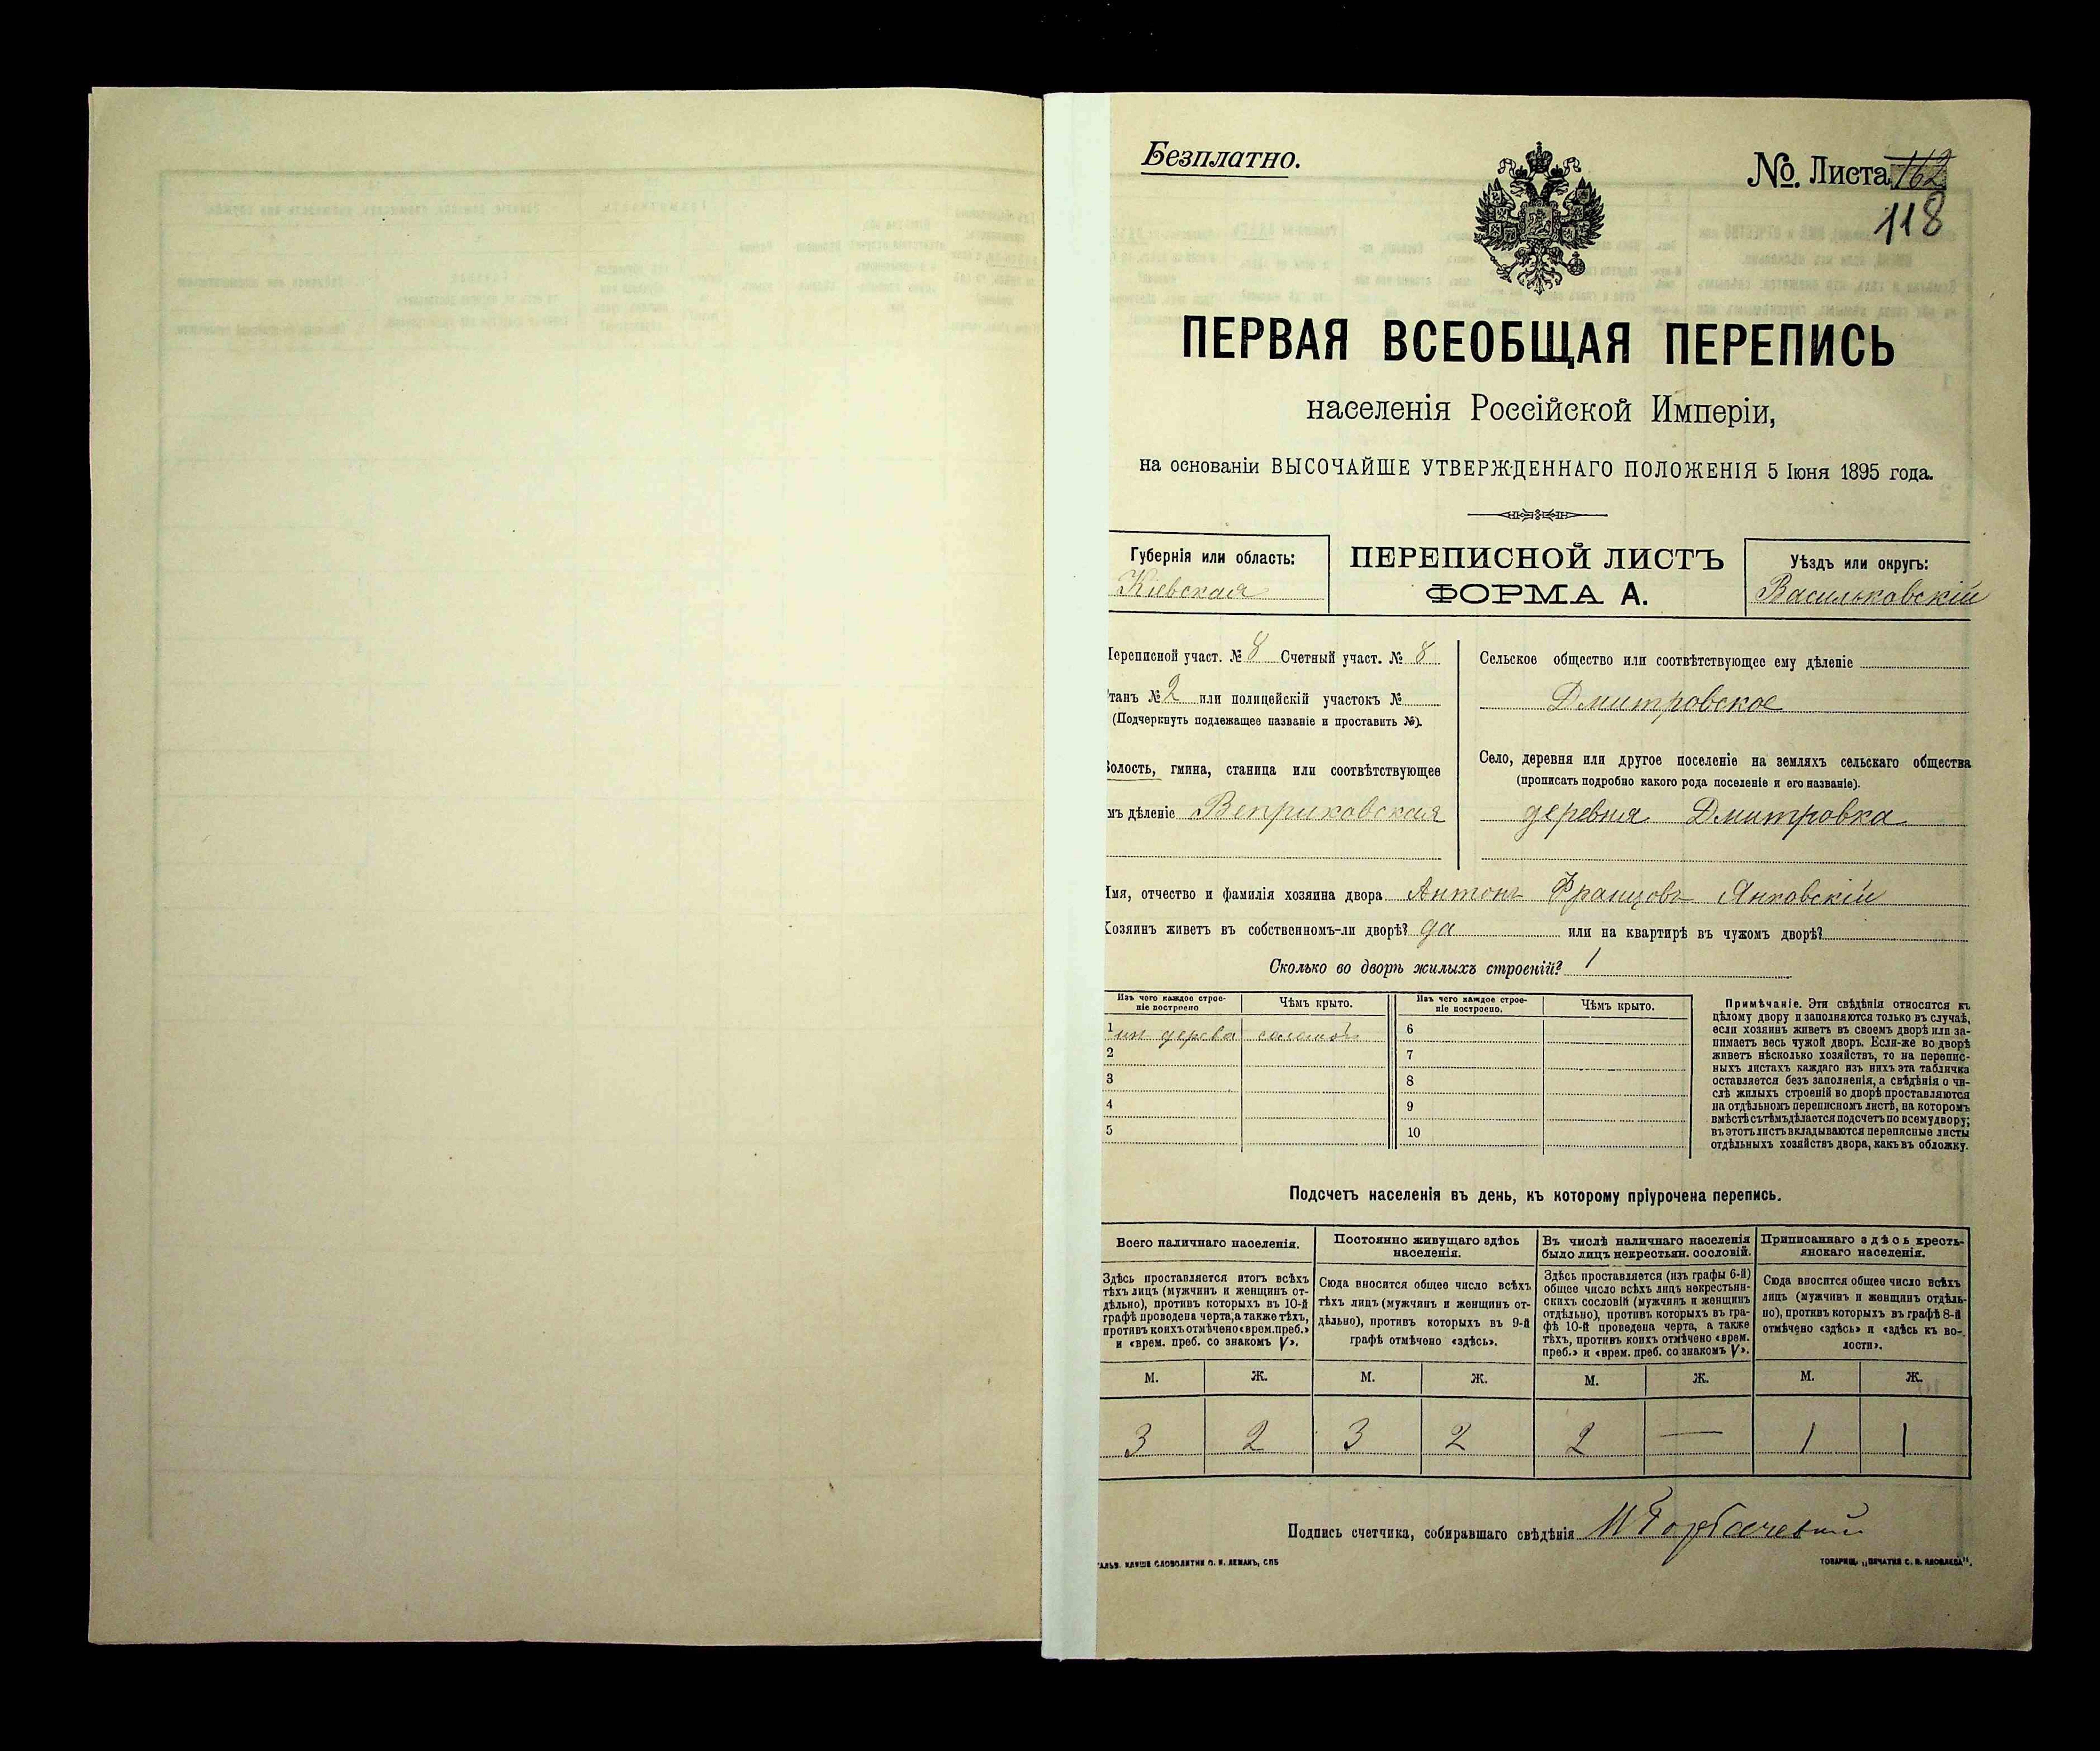 Безплатно.
№ Листа 162
118
ПЕРВАЯ ВСЕОБЩАЯ ПЕРЕПИСЬ
населенія Россійской Имперіи,
на основаніи ВЫСОЧАЙШЕ УТВЕРЖДЕННАГО ПОЛОЖЕНІЯ 5 Іюня 1895 года.
Губернія или область:
Кіевская
ПЕРЕПИСНОЙ ЛИСТЪ
ФОРМА А.
Уѣздъ или округъ:
Васильковскій
Переписной участ. № 8 Счетный участ. № 8
танъ № 2 или полицейскій участокъ №
(Подчеркнуть подлежащее названіе и проставить №).
Волость, гмина, станица или соотвѣтствующее
мъ дѣленіе Веприковская
Сельское общество или соотвѣтствующее ему дѣленіе
Дмитровское
Село, деревня или другое поселеніе на земляхъ сельскаго общества
(прописать подробно какого рода поселеніе и его названіе).
деревня Дмитровка
Имя, отчество и фамилія хозяина двора Антонъ Францовъ Янковскій
Хозяинъ живетъ въ собственномъ-ли дворѣ? да или на квартирѣ въ чужомъ дворѣ?
Сколько во дворѣ жилыхъ строеній? 1
Изъ чего каждое строе-
ніе построено
Чѣмъ крыто.
Изъ чего каждое строе-
ніе построено.
Чѣмъ крыто.
1 из дерева соломой 6
2 7
3 8
4 9
5 10
Примѣчаніе. Эти свѣдѣнія относятся къ
цѣлому двору и заполняются только въ случаѣ,
если хозяинъ живетъ въ своемъ дворѣ или за-
нимаетъ весь чужой дворъ. Если-же во дворѣ
живетъ нѣсколько хозяйствъ, то на перепис-
ныхъ листахъ каждаго изъ нихъ эта табличка
оставляется безъ заполненія, а свѣдѣнія о чи-
слѣ жилыхъ строеній во дворѣ проставляются
на отдѣльномъ переписномъ листѣ, на которомъ
вмѣстѣ съ тѣмъ дѣлается подсчетъ по всему двору;
въ этотъ листъ вкладываются переписные листы
отдѣльныхъ хозяйствъ двора, какъ въ обложку.
Подсчетъ населенія въ день, къ которому пріурочена перепись.
Всего наличнаго населенія.
Здѣсь проставляется итогъ всѣхъ
тѣхъ лицъ (мужчинъ и женщинъ от-
дѣльно), противъ которыхъ въ 10-й
графѣ проведена черта, а также тѣхъ,
противъ коихъ отмѣчено «врем. преб.»
и «врем. преб. со знакомъ V».
Постоянно живущаго здѣсь
населенія.
Сюда вносится общее число всѣхъ
тѣхъ лицъ (мужчинъ и женщинъ от-
дѣльно), противъ которыхъ въ 9-й
графѣ отмѣчено «здѣсь».
Въ числѣ наличнаго населенія
было лицъ некрестьян. сословій.
Здѣсь проставляется (изъ графы 6-й)
общее число всѣхъ лицъ некрестьян-
скихъ сословій (мужчинъ и женщинъ
отдѣльно), противъ которыхъ въ гра-
фѣ 10-й проведена черта, а также
тѣхъ, противъ коихъ отмѣчено «врем.
преб.» и «врем. преб. со знакомъ V».
Приписаннаго здѣсь кресть-
янскаго населенія.
Сюда вносится общее число всѣхъ
лицъ (мужчинъ и женщинъ отдѣль-
но), противъ которыхъ въ графѣ 8-й
отмѣчено «здѣсь» и «здѣсь къ во-
лости».
М. Ж. М. Ж. М. Ж. М. Ж.
3 2 3 2 2 — 1 1
Подпись счетчика, собиравшаго свѣдѣнія
ГАЛЬВ. КЛИШЕ СЛОВОЛИТНИ О. И. ЛЕМАНЪ, СПБ
ТОВАРИЩ. „ПЕЧАТНЯ С. П. ЯКОВЛЕВА“.